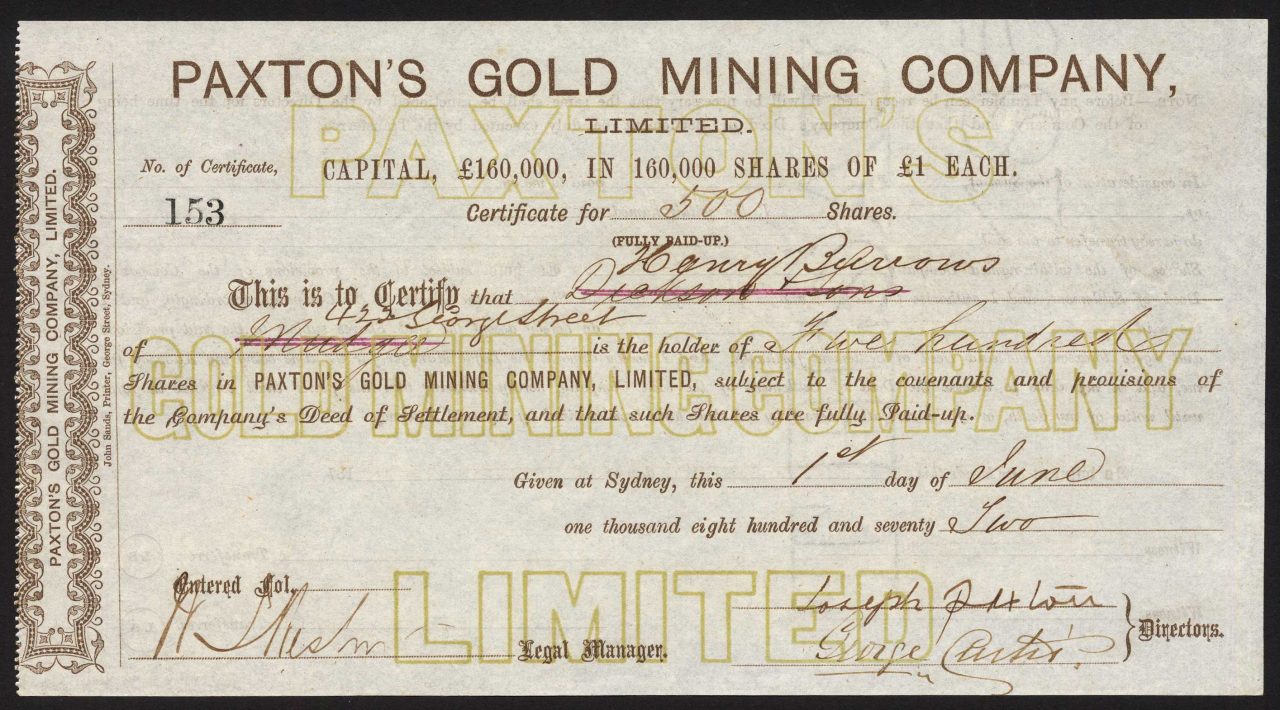 PAXTON'S GOLD MINING COMPANY,
LIMITED.
No. of Certificate,
CAPITAL, £160,000, IN 160,000 SHARES OF £1 EACH.
153
Certificate for 500 Shares.
(FULLY PAID-UP.)
Henry
This is to Certify that Dickson & Sons
423 George Street
of Mudgee is the holder of Five hundred
Shares in PAXTON'S GOLD MINING COMPANY, LIMITED, subject to the covenants and provisions of
the Company's Deed of Settlement, and that such Shares are fully Paid-up.
Given at Sydney, this 1st day of June
one thousand eight hundred and seventy Two
Entered Fol.
Joseph Paxton
Legal Manager.
George Curtis
Directors.
PAXTON'S
GOLD MINING COMPANY
LIMITED
PAXTON'S GOLD MINING COMPANY, LIMITED.
PAXTON'S GOLD MINING COMPANY, LIMITED.
John Sands, Printer, George Street, Sydney.